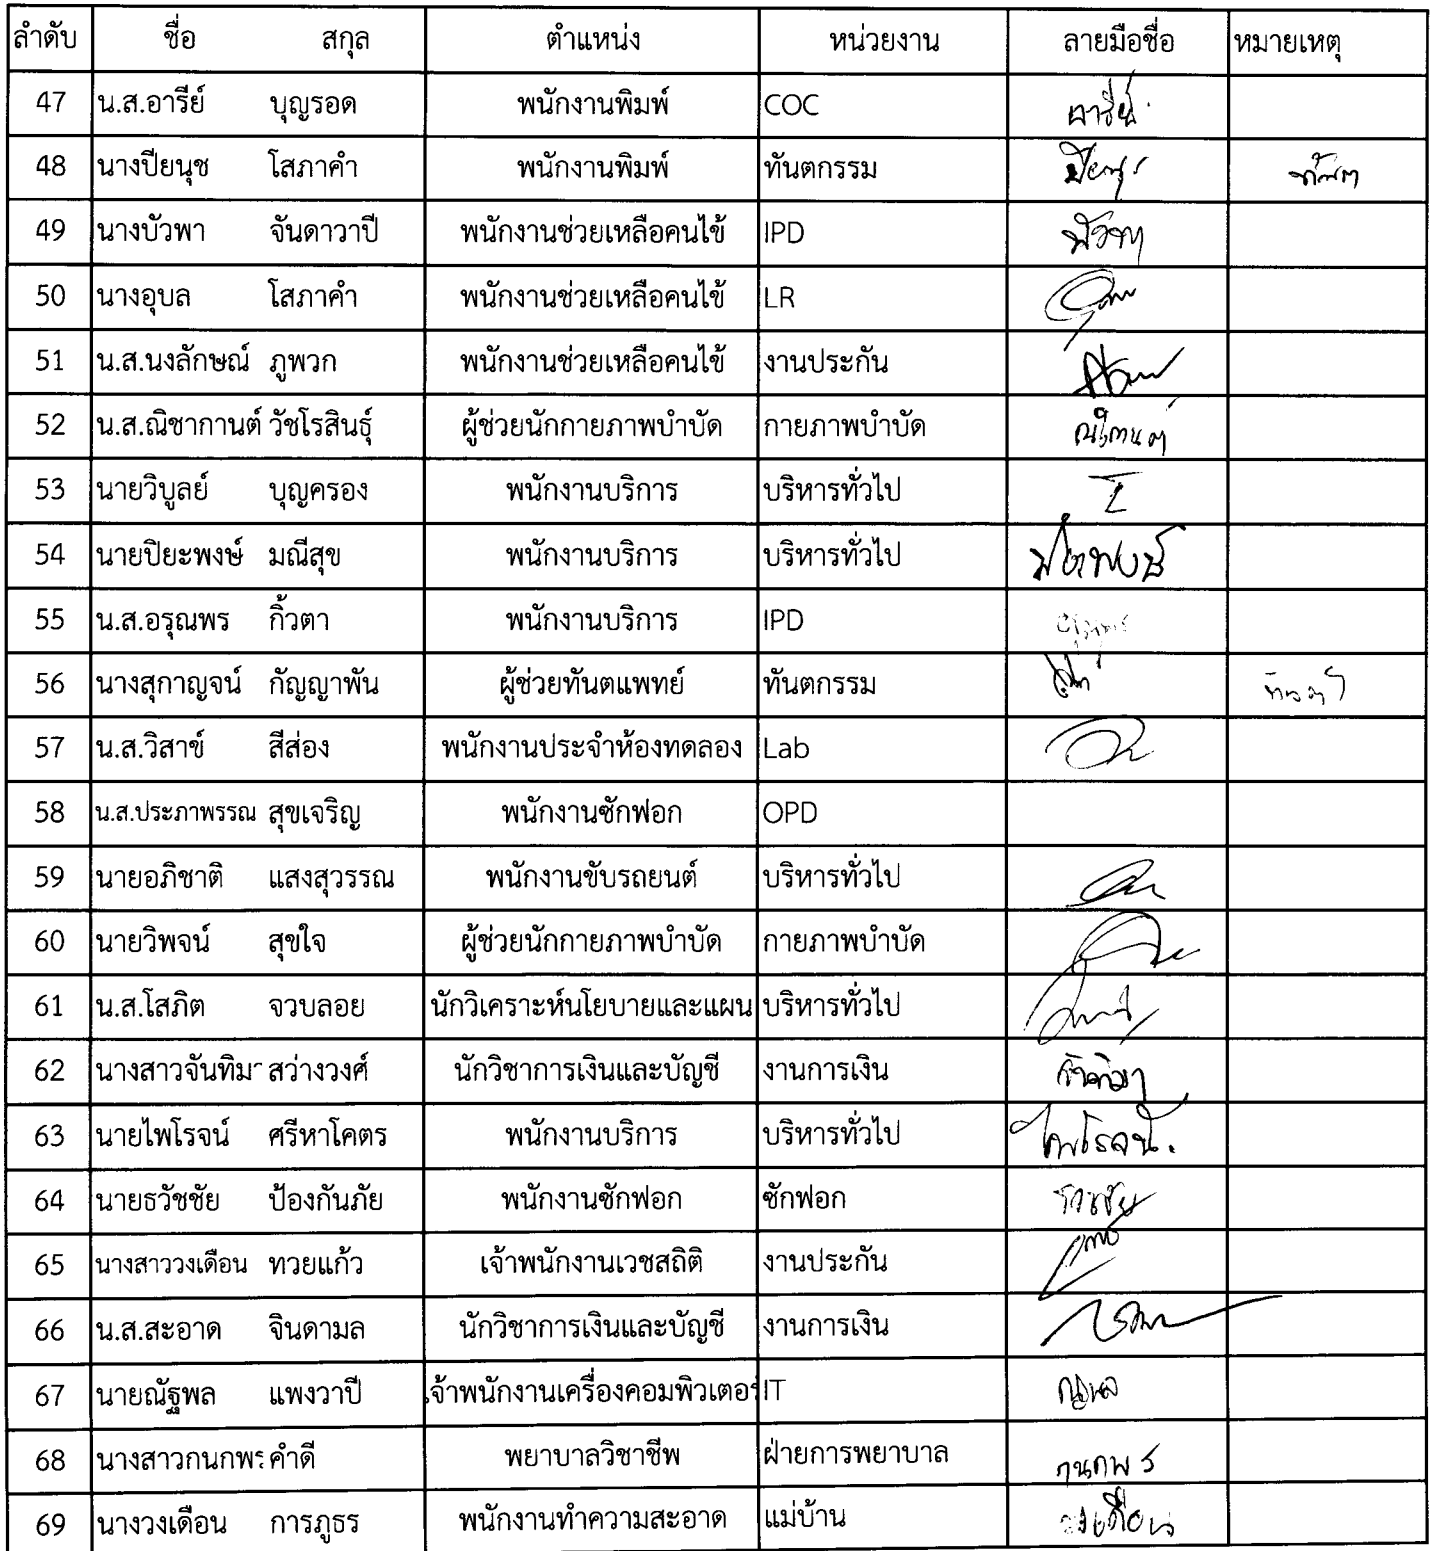 ลำดับ ชื่อ สกุล ตำแหน่ง หน่วยงาน ลายมือชื่อ หมายเหตุ
47 น.ส.อารีย์ บุญรอด พนักงานพิมพ์ COC อารีย์
48 นางปิยนุช โสภาคำ พนักงานพิมพ์ ทันตกรรม
49 นางบัวพา จันดาวาปี พนักงานช่วยเหลือคนไข้ IPD บัวพา
50 นางอุบล โสภาคำ พนักงานช่วยเหลือคนไข้ LR
51 น.ส.นงลักษณ์ ภูพวก พนักงานช่วยเหลือคนไข้ งานประกัน
52 น.ส.ณิชากานต์ วัชโรสินธุ์ ผู้ช่วยนักกายภาพบำบัด กายภาพบำบัด
53 นายวิบูลย์ บุญครอง พนักงานบริการ บริหารทั่วไป
54 นายปิยะพงษ์ มณีสุข พนักงานบริการ บริหารทั่วไป
55 น.ส.อรุณพร กิ้วตา พนักงานบริการ IPD
56 นางสุกาญจน์ กัญญาพัน ผู้ช่วยทันตแพทย์ ทันตกรรม
57 น.ส.วิสาข์ สีส่อง พนักงานประจำห้องทดลอง Lab
58 น.ส.ประภาพรรณ สุขเจริญ พนักงานซักฟอก OPD
59 นายอภิชาติ แสงสุวรรณ พนักงานขับรถยนต์ บริหารทั่วไป
60 นายวิพจน์ สุขใจ ผู้ช่วยนักกายภาพบำบัด กายภาพบำบัด
61 น.ส.โสภิต จวบลอย นักวิเคราะห์นโยบายและแผน บริหารทั่วไป
62 นางสาวจันทิมา สว่างวงศ์ นักวิชาการเงินและบัญชี งานการเงิน จันทิมา
63 นายไพโรจน์ ศรีหาโคตร พนักงานบริการ บริหารทั่วไป ไพโรจน์.
64 นายธวัชชัย ป้องกันภัย พนักงานซักฟอก ซักฟอก ธวัชชัย
65 นางสาววงเดือน ทวยแก้ว เจ้าพนักงานเวชสถิติ งานประกัน
66 น.ส.สะอาด จินดามล นักวิชาการเงินและบัญชี งานการเงิน
67 นายณัฐพล แพงวาปี เจ้าพนักงานเครื่องคอมพิวเตอร์ IT
68 นางสาวกนกพร คำดี พยาบาลวิชาชีพ ฝ่ายการพยาบาล กนกพร
69 นางวงเดือน การภูธร พนักงานทำความสะอาด แม่บ้าน วงเดือน